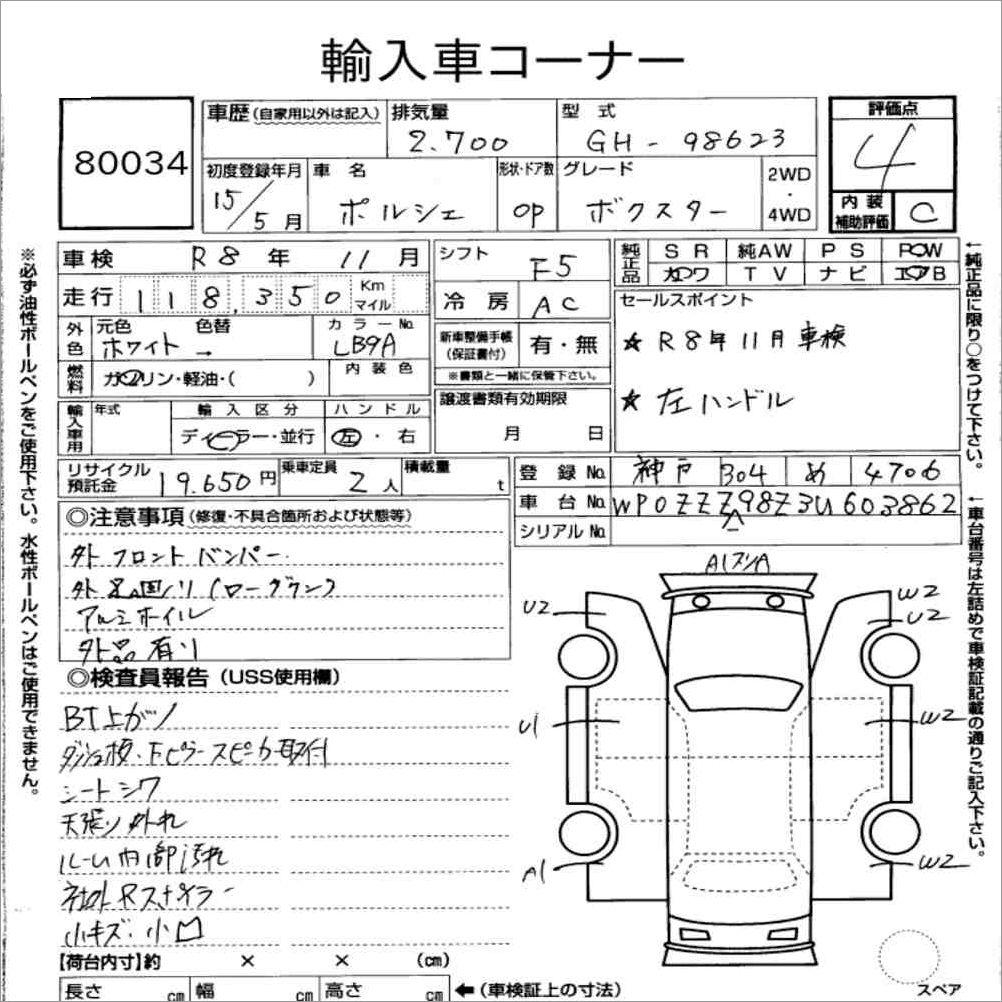 輸入車コーナー
80034
車歴 (自家用以外は記入) 排気量 2.700 型式 GH-98623 評価点 4
初度登録年月 15/5月 車名 ポルシェ 形状・ドア数 OP グレード ボクスター 2WD・4WD 内装補助評価 C
車検 R8年 11月 シフト F5 純正品 SR 純AW PS POW
カワ TV ナビ エアB
走行 118,350 Km マイル 冷房 AC セールスポイント
外色 元色 ホワイト 色替 → カラーNo. LB9A 新車整備手帳(保証書付) 有・無 ※書類と一緒に保管下さい。 ★ R8年11月車検
燃料 ガソリン・軽油・( ) 内装色 譲渡書類有効期限 月 日 ★ 左ハンドル
輸入車用 年式 輸入区分 ディーラー・並行 ハンドル 左・右
リサイクル預託金 19.650円 乗車定員 2人 積載量 t 登録No. 神戸 304 め 4706
車台No. WP0ZZZ98Z3U603862
シリアルNo.
◎注意事項(修復・不具合箇所および状態等)
外 フロントバンパー
外 (ローダウン)
アルミホイル
外品有り
◎検査員報告(USS使用欄)
BT上がり
取付
シートシワ
天張り外れ
ルーム内部汚れ
社外Rスポイラー
小キズ・小凹
A1スリA
U2 W2
U2
U1 W2
A1 W2
【荷台内寸】約 × × (cm)
長さ cm 幅 cm 高さ cm ←(車検証上の寸法) スペア
※必ず油性ボールペンをご使用下さい。水性ボールペンはご使用できません。
←純正品に限り○をつけて下さい。
←車台番号は左詰めで車検証記載の通りご記入下さい。